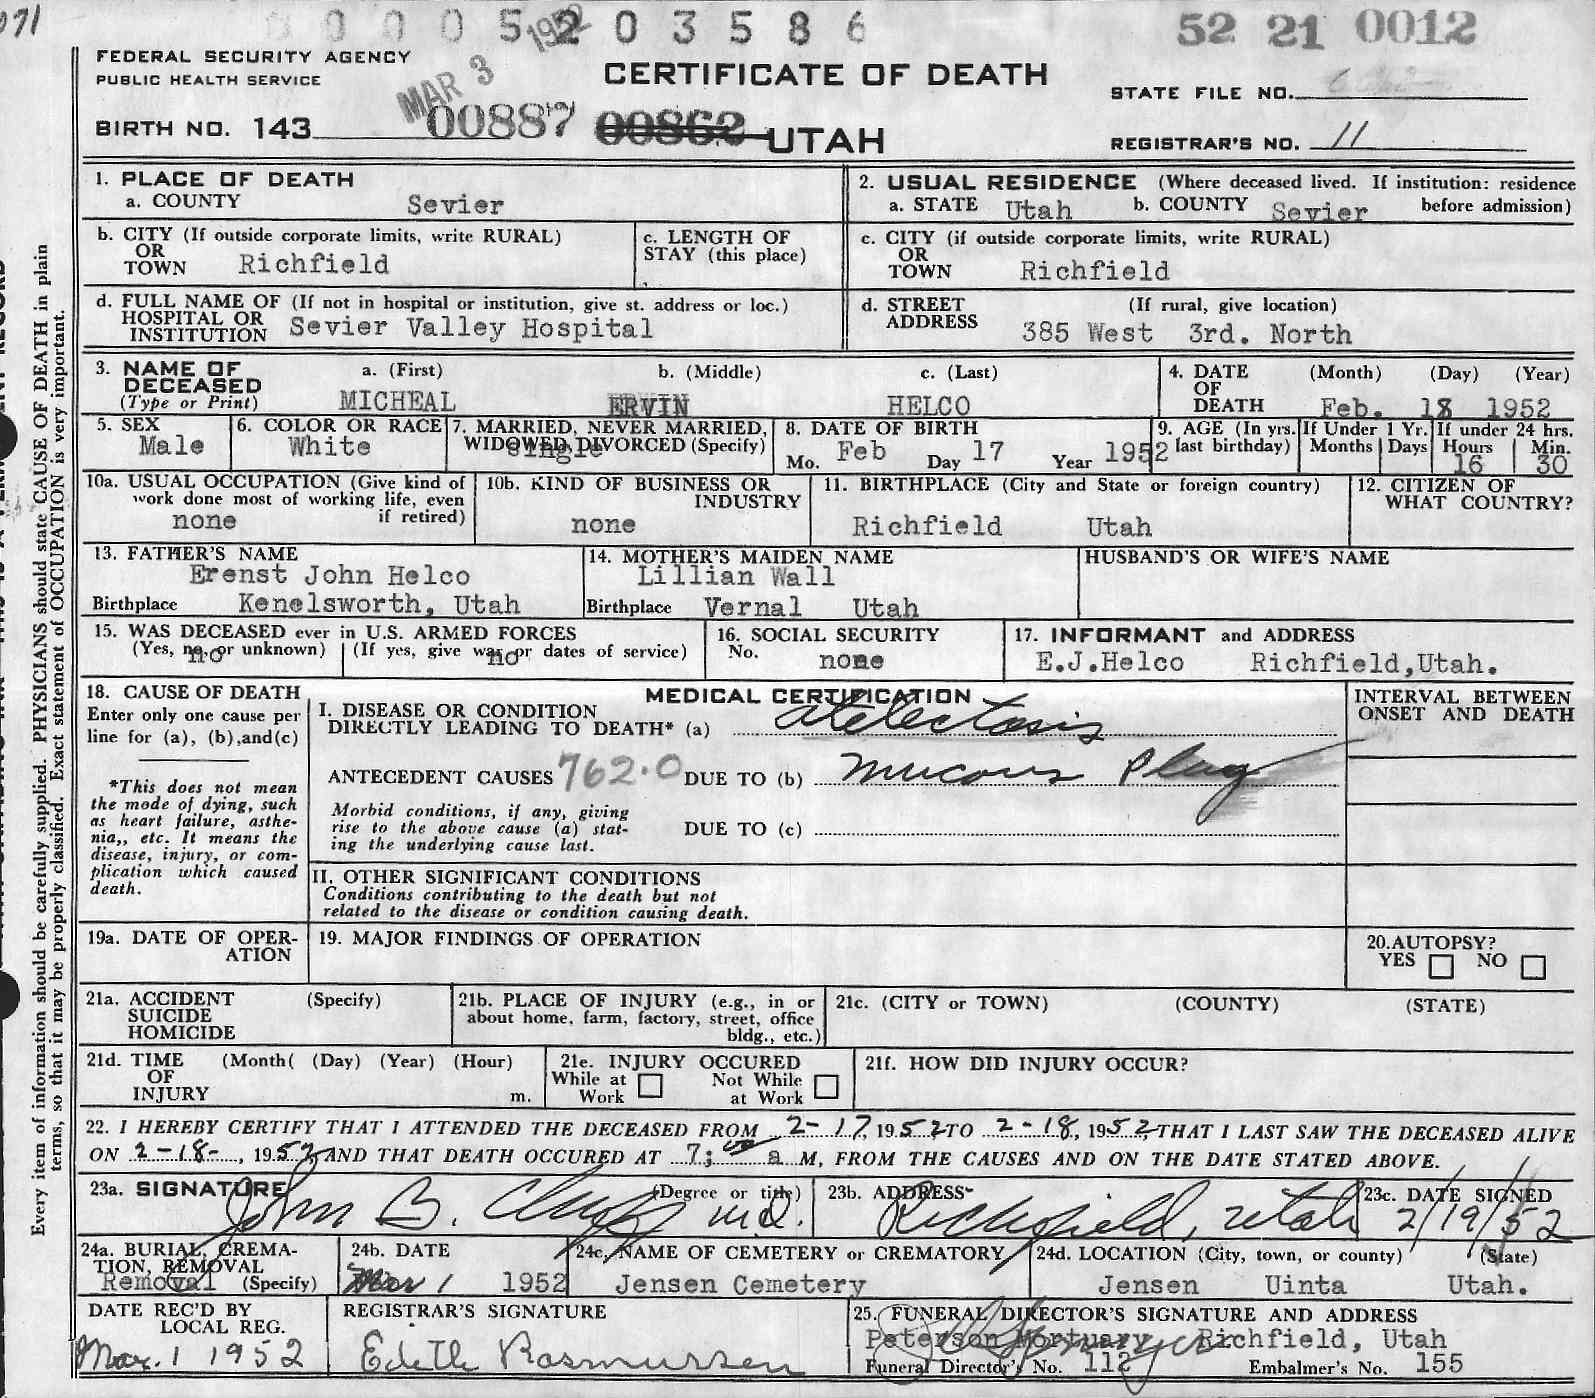 071
0 0 0 5 2 0 3 5 8 6
52 21 0012
FEDERAL SECURITY AGENCY
PUBLIC HEALTH SERVICE
MAR 3 1952
CERTIFICATE OF DEATH
STATE FILE NO.
BIRTH NO. 143 00887 00862 UTAH
REGISTRAR'S NO. 11
1. PLACE OF DEATH
a. COUNTY Sevier
2. USUAL RESIDENCE (Where deceased lived. If institution: residence before admission)
a. STATE Utah b. COUNTY Sevier
b. CITY (If outside corporate limits, write RURAL)
OR
TOWN Richfield
c. LENGTH OF
STAY (this place)
c. CITY (if outside corporate limits, write RURAL)
OR
TOWN Richfield
d. FULL NAME OF (If not in hospital or institution, give st. address or loc.)
HOSPITAL OR
INSTITUTION Sevier Valley Hospital
d. STREET (If rural, give location)
ADDRESS 385 West 3rd. North
3. NAME OF
DECEASED
(Type or Print)
a. (First) b. (Middle) c. (Last)
MICHEAL ERVIN HELCO
4. DATE (Month) (Day) (Year)
OF
DEATH Feb. 18 1952
5. SEX
Male
6. COLOR OR RACE
White
7. MARRIED, NEVER MARRIED,
WIDOWED, DIVORCED (Specify)
Single
8. DATE OF BIRTH
Mo. Feb Day 17 Year 1952
9. AGE (In yrs. last birthday)
If Under 1 Yr.
Months Days
If under 24 hrs.
Hours Min.
16 30
10a. USUAL OCCUPATION (Give kind of
work done most of working life, even
if retired)
none
10b. KIND OF BUSINESS OR
INDUSTRY
none
11. BIRTHPLACE (City and State or foreign country)
Richfield Utah
12. CITIZEN OF
WHAT COUNTRY?
13. FATHER'S NAME
Erenst John Helco
Birthplace Kenelsworth, Utah
14. MOTHER'S MAIDEN NAME
Lillian Wall
Birthplace Vernal Utah
HUSBAND'S OR WIFE'S NAME
15. WAS DECEASED ever in U.S. ARMED FORCES
(Yes, no, or unknown) (If yes, give war or dates of service)
no no
16. SOCIAL SECURITY
No. none
17. INFORMANT and ADDRESS
E.J.Helco Richfield,Utah.
18. CAUSE OF DEATH
Enter only one cause per
line for (a), (b),and(c)
*This does not mean
the mode of dying, such
as heart failure, asthe-
nia,, etc. It means the
disease, injury, or com-
plication which caused
death.
MEDICAL CERTIFICATION
I. DISEASE OR CONDITION
DIRECTLY LEADING TO DEATH* (a) atelectosis
ANTECEDENT CAUSES 762.0 DUE TO (b) mucous Plug
Morbid conditions, if any, giving
rise to the above cause (a) stat-
ing the underlying cause last.
DUE TO (c)
II. OTHER SIGNIFICANT CONDITIONS
Conditions contributing to the death but not
related to the disease or condition causing death.
INTERVAL BETWEEN
ONSET AND DEATH
19a. DATE OF OPER-
ATION
19. MAJOR FINDINGS OF OPERATION
20.AUTOPSY?
YES NO
21a. ACCIDENT (Specify)
SUICIDE
HOMICIDE
21b. PLACE OF INJURY (e.g., in or
about home, farm, factory, street, office
bldg., etc.)
21c. (CITY or TOWN) (COUNTY) (STATE)
21d. TIME (Month( (Day) (Year) (Hour)
OF
INJURY m.
21e. INJURY OCCURED
While at Work Not While at Work
21f. HOW DID INJURY OCCUR?
22. I HEREBY CERTIFY THAT I ATTENDED THE DECEASED FROM 2-17, 1952 TO 2-18, 1952, THAT I LAST SAW THE DECEASED ALIVE
ON 2-18-, 1952 AND THAT DEATH OCCURED AT 7:00 a M, FROM THE CAUSES AND ON THE DATE STATED ABOVE.
23a. SIGNATURE (Degree or title)
John B. Cluff m.d.
23b. ADDRESS
Richfield, Utah
23c. DATE SIGNED
2/19/52
24a. BURIAL, CREMA-
TION, REMOVAL
Removal (Specify)
24b. DATE
Mar 1 1952
24c. NAME OF CEMETERY OR CREMATORY
Jensen Cemetery
24d. LOCATION (City, town, or county) (State)
Jensen Uinta Utah.
DATE REC'D BY
LOCAL REG.
Mar. 1 1952
REGISTRAR'S SIGNATURE
Edith Rasmussen
25. FUNERAL DIRECTOR'S SIGNATURE AND ADDRESS
Peterson Mortuary Richfield, Utah
Funeral Director's No. 112 Embalmer's No. 155
Every item of information should be carefully supplied. PHYSICIANS should state CAUSE OF DEATH in plain
terms, so that it may be properly classified. Exact statement of OCCUPATION is very important.